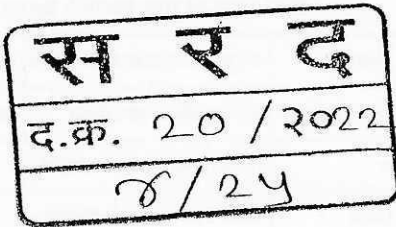 स र द
द.क्र. २० /२०२२
४/२५